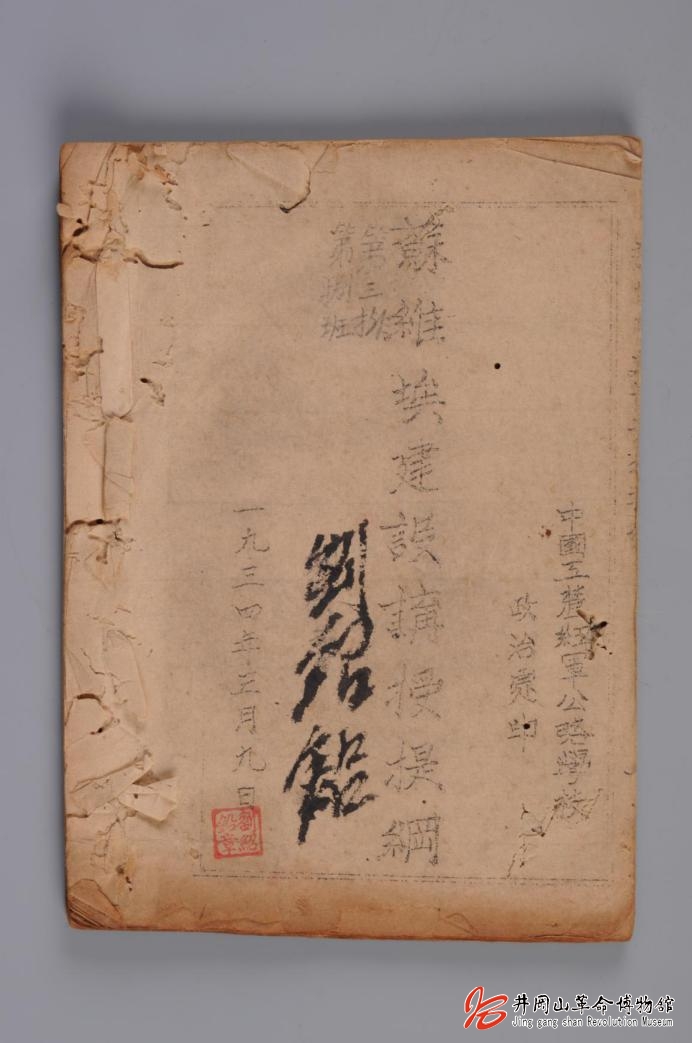 中國工農紅軍公略學校
政治處印
蘇維埃建設講授提綱
第三
第捌班
劉紹
一九三四年三月九日
井冈山革命博物馆
Jing gang shan Revolution Museum